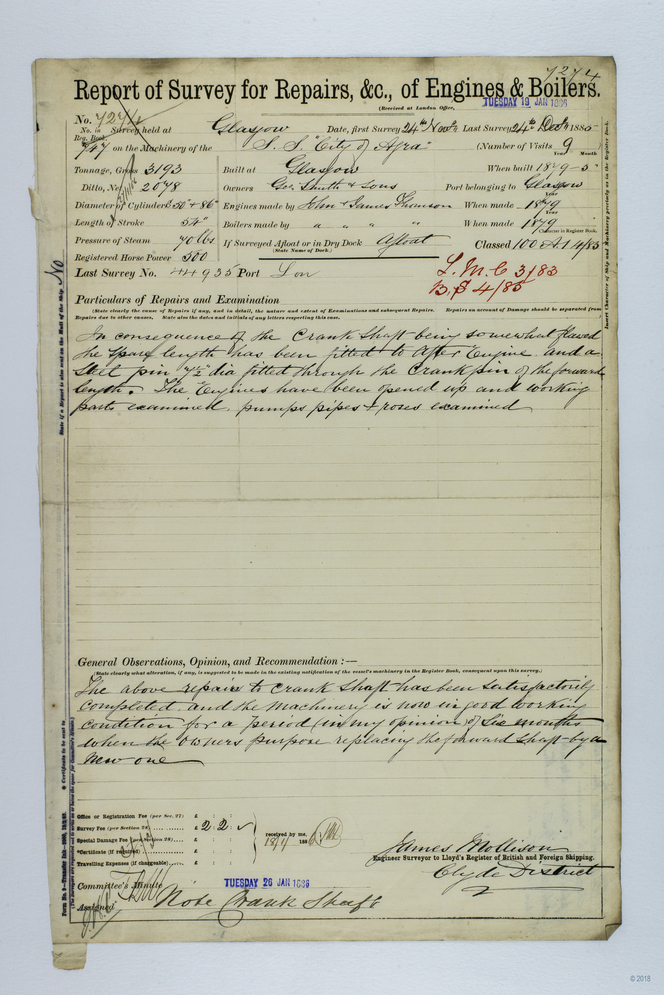 7274
Report of Survey for Repairs, &c., of Engines & Boilers.
(Received at London Office,
TUESDAY 19 JAN 1886
No. 7274
No. in Reg. Book. Survey held at Glasgow Date, first Survey 24th Novr. Last Survey 24th Decr. 1885
747 on the Machinery of the S. S. "City of Agra" (Number of Visits 9
Tonnage, Gross 3193 Built at Glasgow When built 1879-5
Year Month
Ditto, Net 2078 Owners Geo. Smith & Sons Port belonging to Glasgow
Diameter of Cylinders 50" & 86" Engines made by John & James Thomson When made 1879
Year
Length of Stroke 54" Boilers made by " " " " When made 1879
Year
Pressure of Steam 70 lbs If Surveyed Afloat or in Dry Dock Afloat Classed 100 A1 4/85
(State Name of Dock.)
Character in Register Book.
Registered Horse Power 500
Last Survey No. 44935 Port Lon
L.M.C 3/83
B.S 4/85
Particulars of Repairs and Examination
(State clearly the cause of Repairs if any, and in detail, the nature and extent of Examinations and subsequent Repairs. Repairs on account of Damage should be separated from
Repairs due to other causes. State also the dates and initials of any letters respecting this case.
In consequence of the Crank Shaft being somewhat flawed
the spare length has been fitted to after Engine and a
Steel pin 7½" dia fitted through the Crank pin of the forward
length. The Engines have been opened up and working
parts examined, pumps pipes & roses examined
General Observations, Opinion, and Recommendation :—
(State clearly what alteration, if any, is suggested to be made in the existing notification of the vessel's machinery in the Register Book, consequent upon this survey.)
The above repairs to Crank Shaft has been satisfactorily
completed and the Machinery is now in good working
condition for a period (in my opinion) of Six months
when the owners purpose replacing the forward shaft by a
New one
Office or Registration Fee (per Sec. 27) £ : :
Survey Fee (per Section 28) £ 2 : 2 :
Special Damage Fee (per Section 28) £ : :
*Certificate (if required) £ : :
Travelling Expenses (if chargeable) £ : :
received by me,
18/1/ 1886
James Mollison
Engineer Surveyor to Lloyd's Register of British and Foreign Shipping.
Clyde District
Committee's Minute
TUESDAY 26 JAN 1886
Assigned Note Crank Shaft
State if a Report is also sent on the Hull of the Ship. No
* Certificate to be sent to
Insert Character of Ship and Machinery precisely as in the Register Book.
© 2018